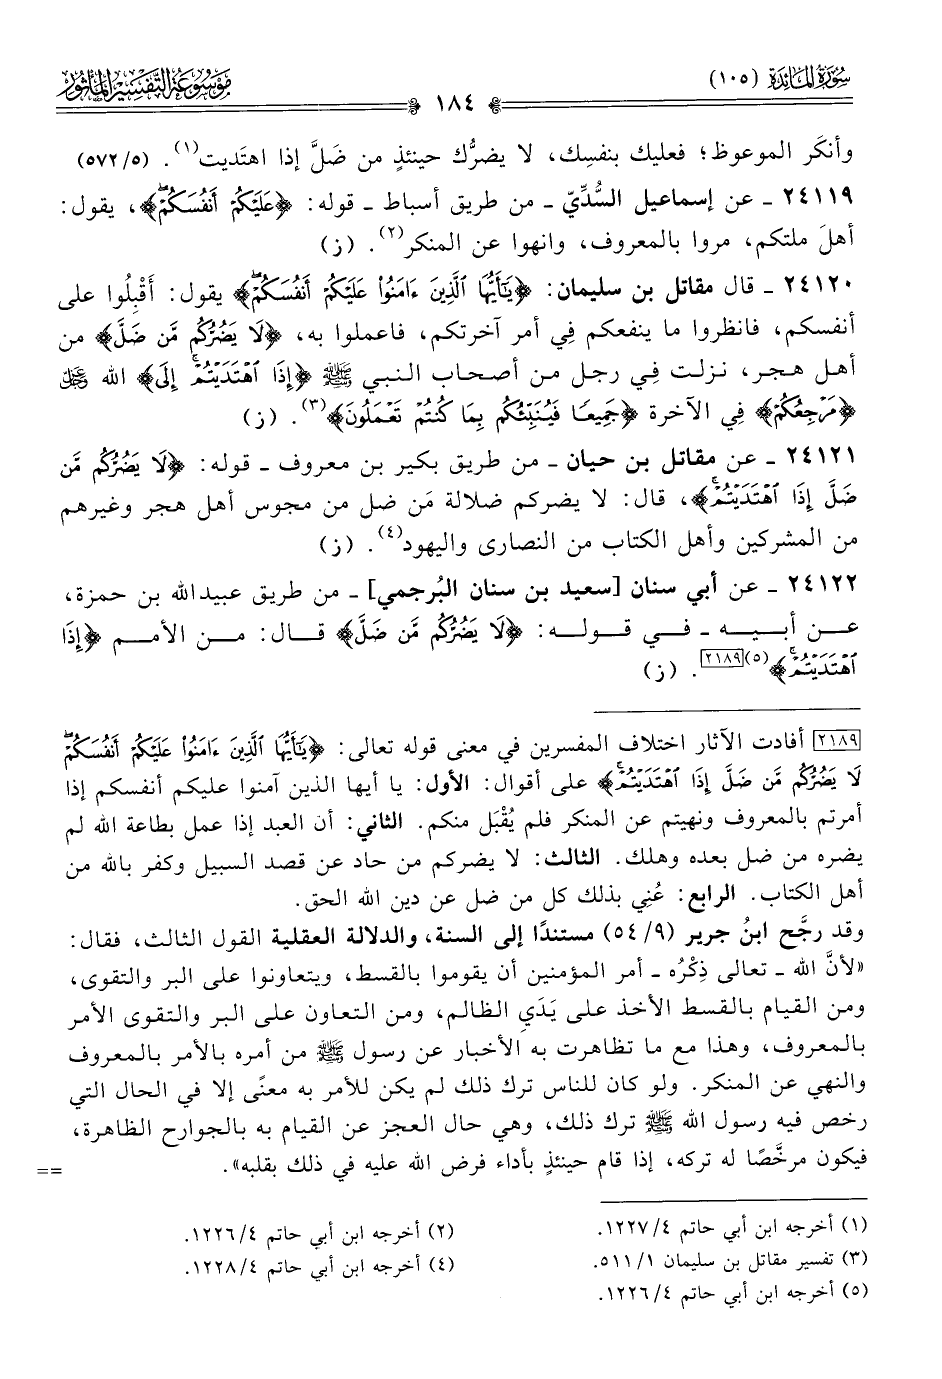 سُورَةُ المَائِدَة (١٠٥)
١٨٤
مَوْسُوعَة التَّفْسِير المَأْثُور
وأنكَر الموعوظ؛ فعليك بنفسك، لا يضرُّك حينئذٍ من ضَلَّ إذا اهتديت(١). (٥/ ٥٧٢)
٢٤١١٩ ـ عن إسماعيل السُّدِّيّ ـ من طريق أسباط ـ قوله: ﴿عَلَيْكُمْ أَنفُسَكُمْ﴾، يقول:
أهلَ ملتكم، مروا بالمعروف، وانهوا عن المنكر(٢). (ز)
٢٤١٢٠ ـ قال مقاتل بن سليمان: ﴿يَٰٓأَيُّهَا ٱلَّذِينَ ءَامَنُوا۟ عَلَيْكُمْ أَنفُسَكُمْ﴾ يقول: أَقْبِلُوا على
أنفسكم، فانظروا ما ينفعكم فِي أمر آخرتكم، فاعملوا به، ﴿لَا يَضُرُّكُم مَّن ضَلَّ﴾ من
أهل هجر، نزلت فِي رجل من أصحاب النبي ﷺ ﴿إِذَا ٱهْتَدَيْتُمْ إِلَى﴾ الله ﷻ
﴿مَرْجِعُكُمْ﴾ فِي الآخرة ﴿جَمِيعًا فَيُنَبِّئُكُم بِمَا كُنتُمْ تَعْمَلُونَ﴾(٣). (ز)
٢٤١٢١ ـ عن مقاتل بن حيان ـ من طريق بكير بن معروف ـ قوله: ﴿لَا يَضُرُّكُم مَّن
ضَلَّ إِذَا ٱهْتَدَيْتُمْ﴾، قال: لا يضركم ضلالة مَن ضل من مجوس أهل هجر وغيرهم
من المشركين وأهل الكتاب من النصارى واليهود(٤). (ز)
٢٤١٢٢ ـ عن أبي سنان [سعيد بن سنان البُرجمي] ـ من طريق عبيدالله بن حمزة،
عن أبيه ـ في قوله: ﴿لَا يَضُرُّكُم مَّن ضَلَّ﴾ قال: من الأمم ﴿إِذَا
ٱهْتَدَيْتُمْ﴾(٥)[٢١٨٩]. (ز)
[٢١٨٩] أفادت الآثار اختلاف المفسرين في معنى قوله تعالى: ﴿يَٰٓأَيُّهَا ٱلَّذِينَ ءَامَنُوا۟ عَلَيْكُمْ أَنفُسَكُمْ
لَا يَضُرُّكُم مَّن ضَلَّ إِذَا ٱهْتَدَيْتُمْ﴾ على أقوال: الأول: يا أيها الذين آمنوا عليكم أنفسكم إذا
أمرتم بالمعروف ونهيتم عن المنكر فلم يُقْبَل منكم. الثاني: أن العبد إذا عمل بطاعة الله لم
يضره من ضل بعده وهلك. الثالث: لا يضركم من حاد عن قصد السبيل وكفر بالله من
أهل الكتاب. الرابع: عُنِي بذلك كل من ضل عن دين الله الحق.
وقد رجَّح ابنُ جرير (٩/ ٥٤) مستندًا إلى السنة، والدلالة العقلية القول الثالث، فقال:
«لأنَّ الله ـ تعالى ذِكْرُه ـ أمر المؤمنين أن يقوموا بالقسط، ويتعاونوا على البر والتقوى،
ومن القيام بالقسط الأخذ على يَدَيِ الظالم، ومن التعاون على البر والتقوى الأمر
بالمعروف، وهذا مع ما تظاهرت به الأخبار عن رسول ﷺ من أمره بالأمر بالمعروف
والنهي عن المنكر. ولو كان للناس ترك ذلك لم يكن للأمر به معنًى إلا في الحال التي
رخص فيه رسول الله ﷺ ترك ذلك، وهي حال العجز عن القيام به بالجوارح الظاهرة،
فيكون مرخَّصًا له تركه، إذا قام حينئذٍ بأداء فرض الله عليه في ذلك بقلبه». ==
(١) أخرجه ابن أبي حاتم ٤/ ١٢٢٧.
(٢) أخرجه ابن أبي حاتم ٤/ ١٢٢٦.
(٣) تفسير مقاتل بن سليمان ١/ ٥١١.
(٤) أخرجه ابن أبي حاتم ٤/ ١٢٢٨.
(٥) أخرجه ابن أبي حاتم ٤/ ١٢٢٦.